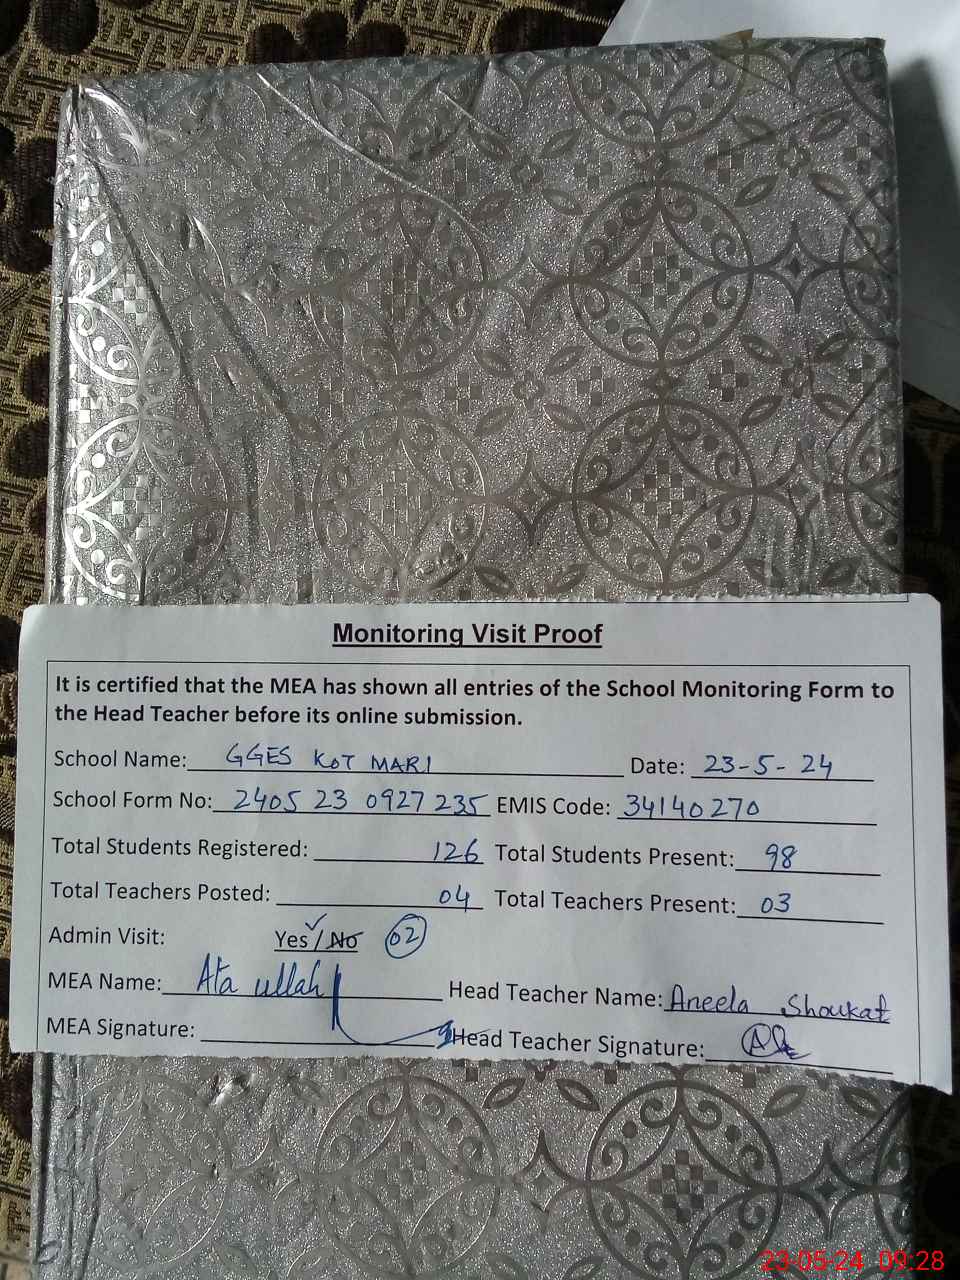 Monitoring Visit Proof
It is certified that the MEA has shown all entries of the School Monitoring Form to
the Head Teacher before its online submission.
School Name: GGES KOT MARI Date: 23-5-24
School Form No: 2405 23 0927 235 EMIS Code: 34140270
Total Students Registered: 126 Total Students Present: 98
Total Teachers Posted: 04 Total Teachers Present: 03
Admin Visit: Yes / No 02
MEA Name: Ata ullah Head Teacher Name: Aneela Shoukat
MEA Signature: Head Teacher Signature:
23-05-24 09:28